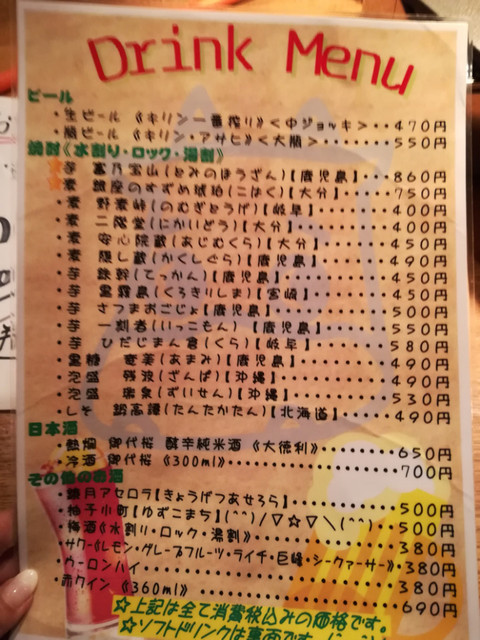 Drink Menu
ビール
・生ビール 《キリン一番搾り》<中ジョッキ>・・470円
・瓶ビール 《キリン・アサヒ》<大瓶>・・・・・・550円
焼酎《水割り・ロック・湯割》
☆芋 富乃宝山(とみのほうざん)【鹿児島】・・・860円
☆麦 銀座のすずめ琥珀(こはく)【大分】・・・・750円
・麦 野麦峠(のむぎとうげ)【岐阜】・・・・・・・400円
・麦 二階堂(にかいどう)【大分】・・・・・・・・400円
・麦 安心院蔵(あじむくら)【大分】・・・・・・・450円
・麦 隠し蔵(かくしぐら)【鹿児島】・・・・・・・490円
・芋 鉄幹(てっかん)【鹿児島】・・・・・・・・・450円
・芋 黒霧島(くろきりしま)【宮崎】・・・・・・・450円
・芋 さつまおごじょ【鹿児島】・・・・・・・・・500円
・芋 一刻者(いっこもん)【鹿児島】・・・・・・・550円
・芋 ひだじまん倉(くら)【岐阜】・・・・・・・・580円
・黒糖 奄美(あまみ)【鹿児島】・・・・・・・・・490円
・泡盛 残波(ざんぱ)【沖縄】・・・・・・・・・・490円
・泡盛 瑞泉(ずいせん)【沖縄】・・・・・・・・・530円
・しそ 鍛高譚(たんたかたん)【北海道】・・・・・490円
日本酒
・熱燗 御代桜 醇辛純米酒 《大徳利》・・・・・・650円
・冷酒 御代桜 《300ml》・・・・・・・・・・・700円
その他のお酒
・鏡月アセロラ【きょうげつあせろら】・・・・・・500円
・柚子小町【ゆずこまち】(^^)/▽☆▽\(^^)・・500円
・梅酒《水割り・ロック・湯割》・・・・・・・・・380円
・サワー《レモン・グレープフルーツ・ライチ・巨峰・シークァーサー》・380円
・ウーロンハイ・・・・・・・・・・・・・・・・・380円
・赤ワイン 《360ml》・・・・・・・・・・・・690円
☆上記は全て消費税込みの価格です。
☆ソフトドリンクは裏面です